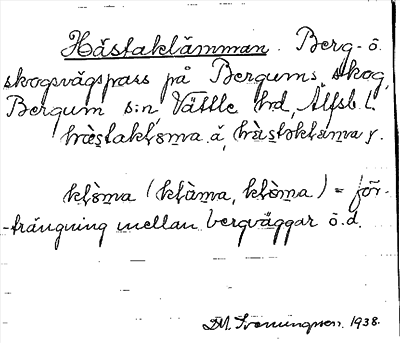 Hästaklämman. Berg- o.
skogsvägspass på Bergums skog,
Bergum s:n, Vättle hd, Älfsb. l.
hästakləma å, hästəkləma y.
kləma (kləma, kləma) = för-
-trängning mellan bergväggar o. d.
D.M. Svenningson. 1938.